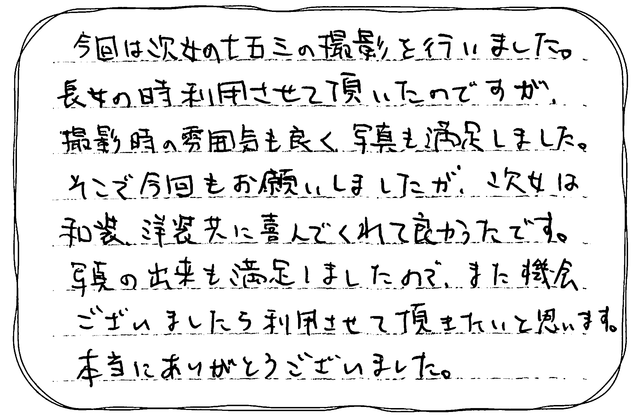 今回は次女の七五三の撮影を行いました。
長女の時利用させて頂いたのですが、
撮影時の雰囲気も良く写真も満足しました。
そこで今回もお願いしましたが、次女は
和装、洋装共に喜んでくれて良かったです。
写真の出来も満足しましたので、また機会
ございましたら利用させて頂きたいと思います。
本当にありがとうございました。